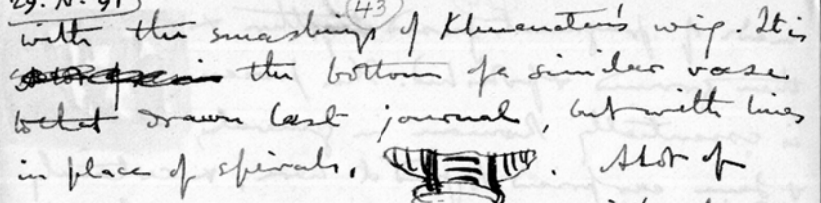 29. N. 91 43
with the smashings of Khuenaten's wig. It is
the bottom of a similar vase
to that drawn last journal, but with lines
in place of spirals. . A lot of